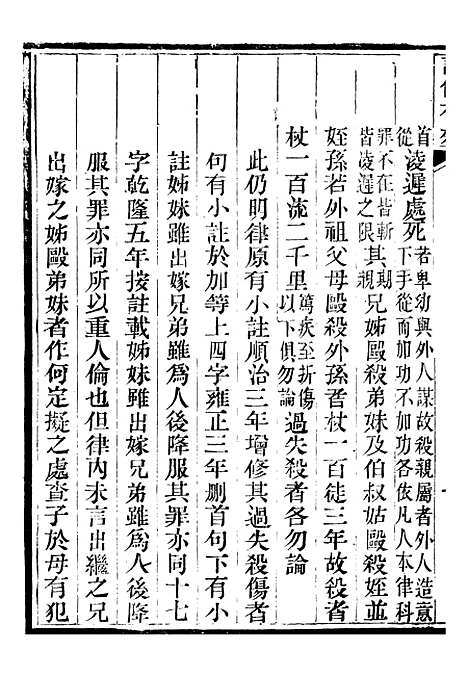 首凌遲處死若卑幼與外人謀故殺親屬者外人造意
從下手從而加功不加功各依凡人本律科
罪不在皆斬其期親
皆凌遲之限兄姊毆殺弟妹及伯叔姑毆殺姪並
姪孫若外祖父母毆殺外孫者杖一百徒三年故殺者
杖一百流二千里篤疾至折傷以下俱勿論過失殺者各勿論
此仍明律原有小註順治三年增修其過失殺傷者
句有小註於加等上四字雍正三年刪首句下有小
註姊妹雖出嫁兄弟雖為人後降服其罪亦同十七
字乾隆五年按註載姊妹雖出嫁兄弟雖為人後降
服其罪亦同所以重人倫也但律內未言出繼之兄
出嫁之姊毆弟妹者作何定擬之處查子於母有犯